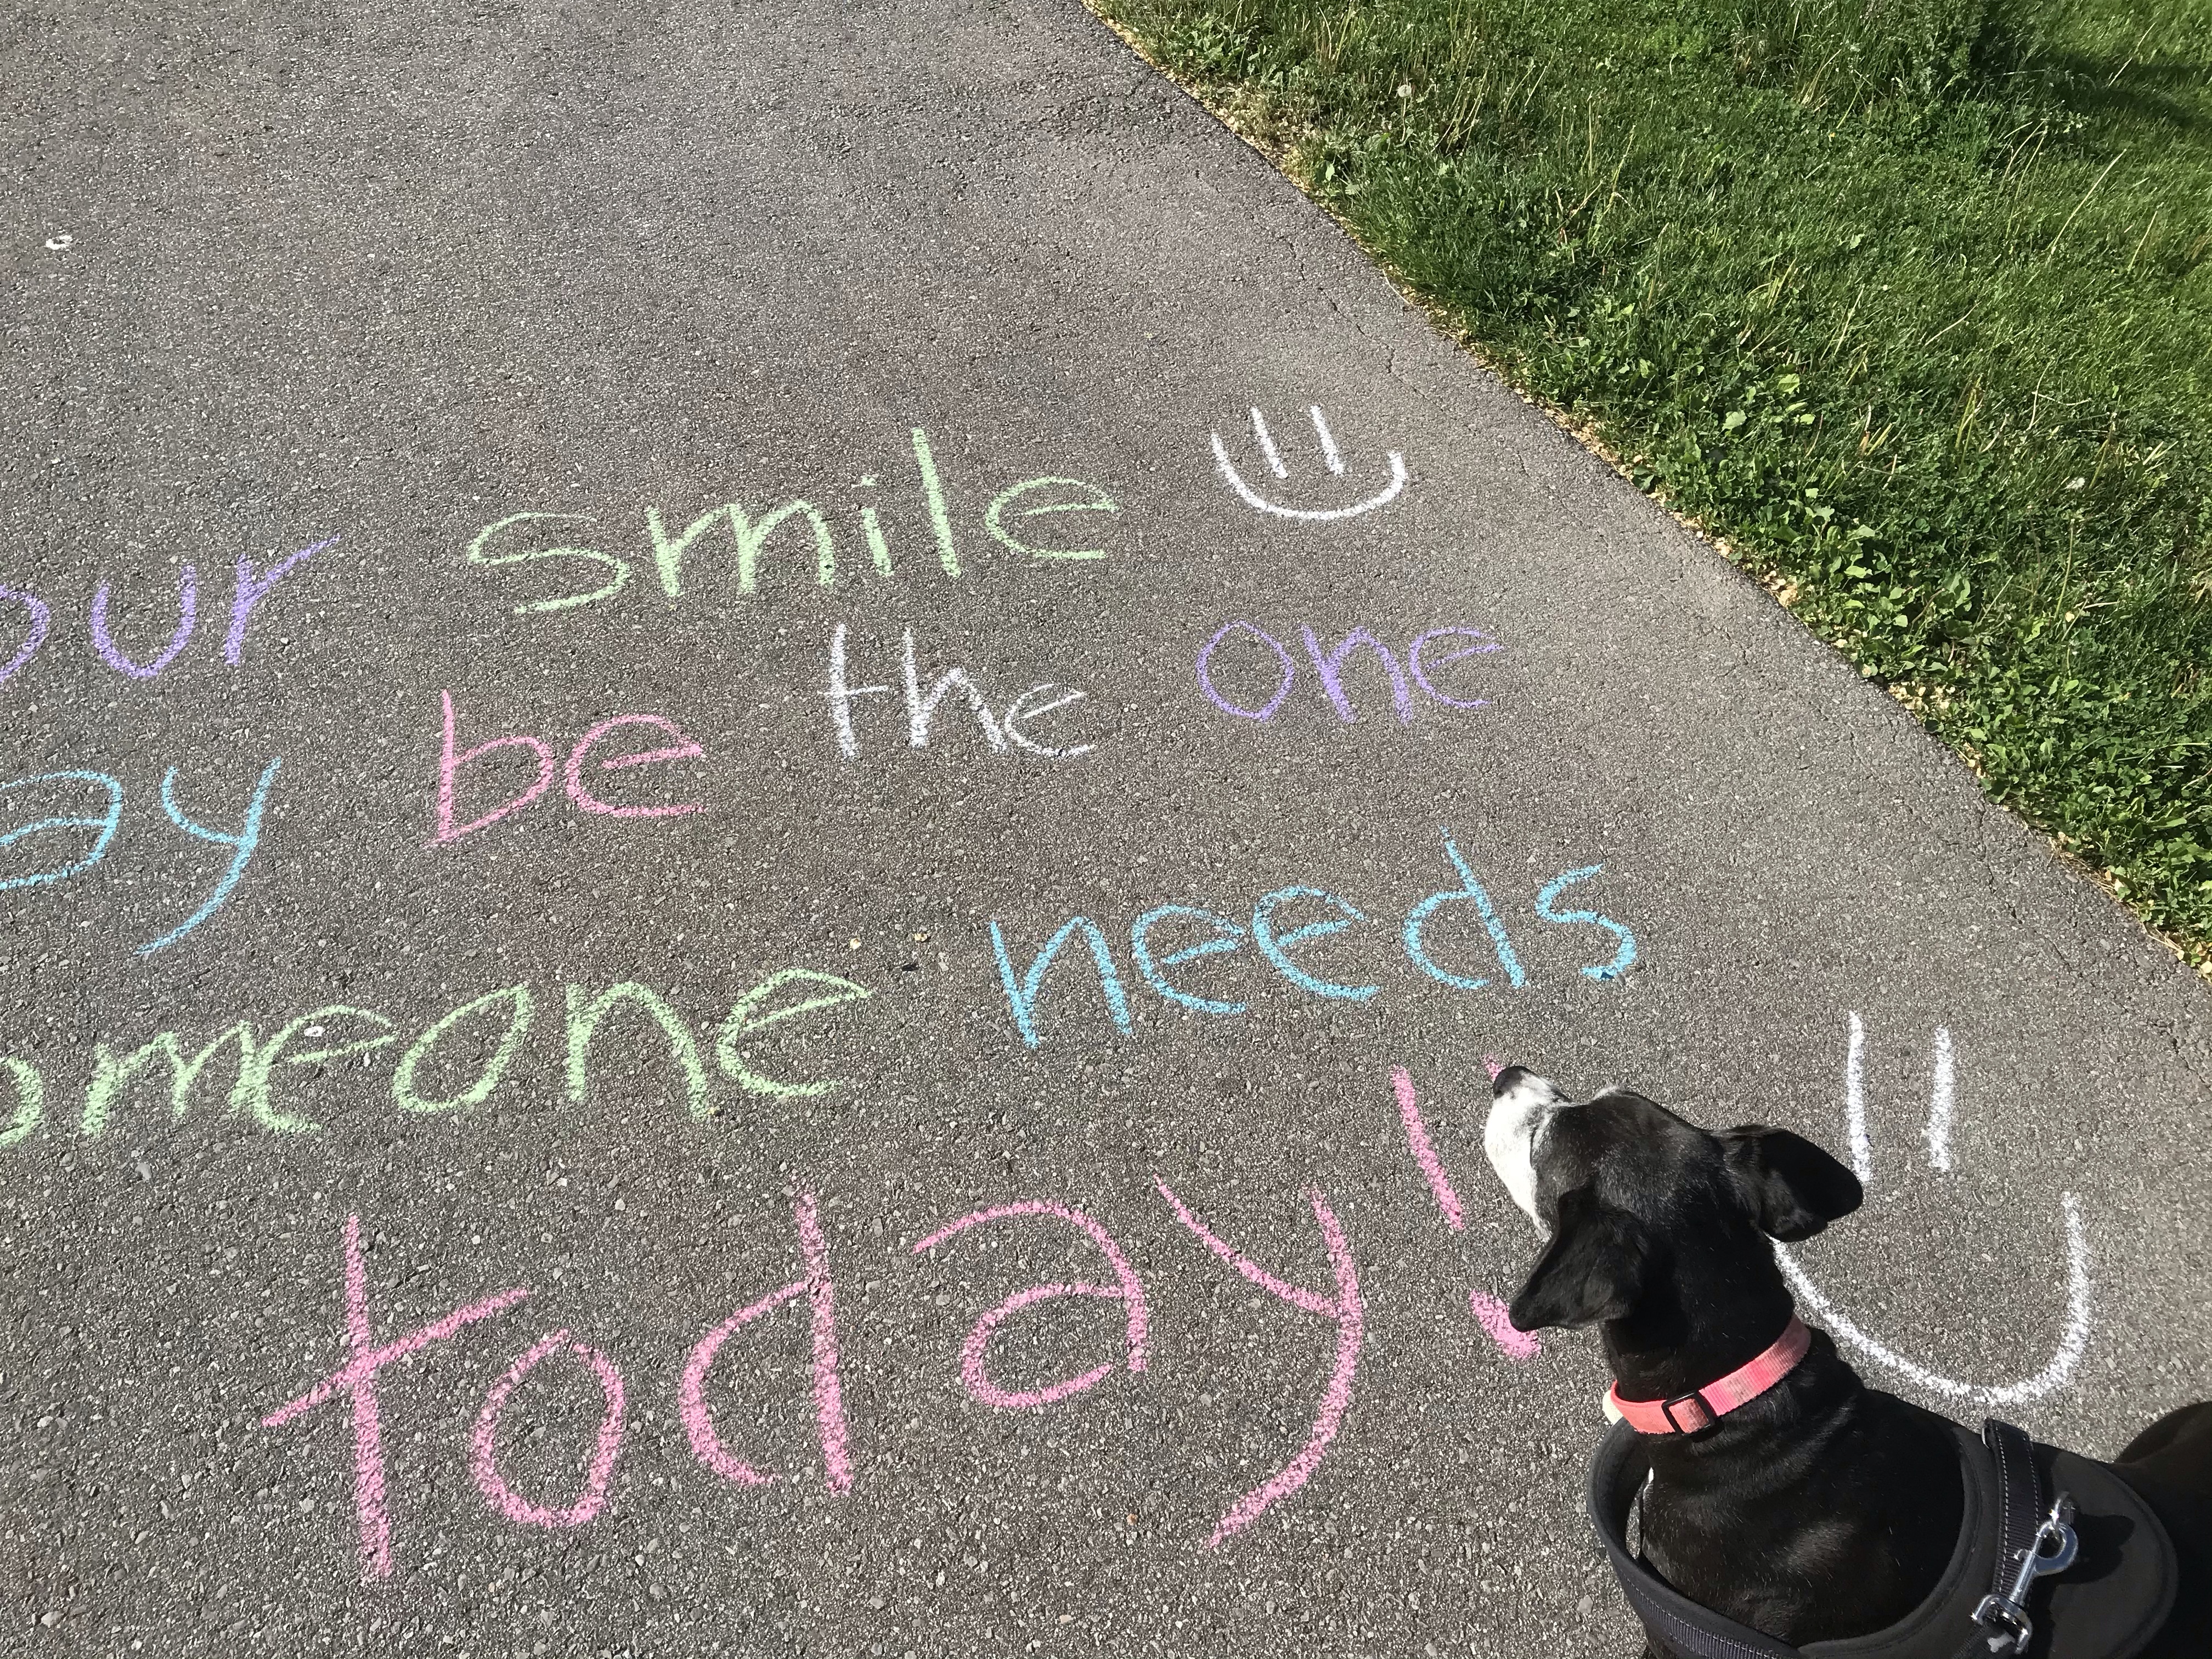 our smile
ay be the one
omeone needs
today!